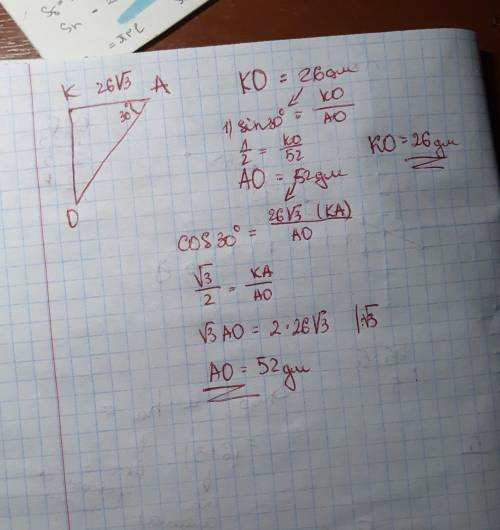 K 26√3 A
30°
O
KO = 26дм
1) sin30° = KO/AO
1/2 = KO/52
KO = 26дм
AO = 52дм
cos30° = 26√3 (KA)/AO
√3/2 = KA/AO
√3 AO = 2·26√3 |:√3
AO = 52дм